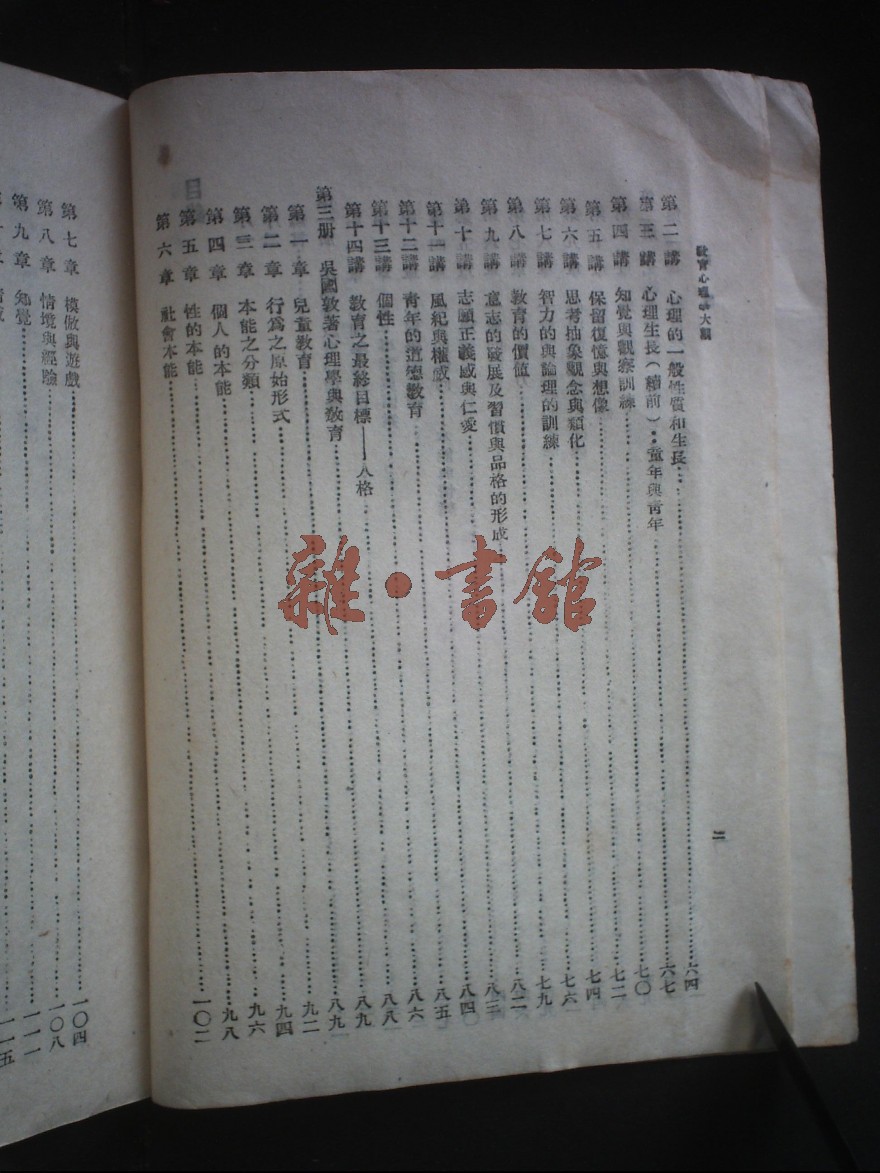 教育心理學大觀
二
第二講 心理的一般性質和生長……六四
第三講 心理生長(續前)..童年與青年……六七
第四講 知覺與觀察訓練……七〇
第五講 保留復憶與想像……七二
第六講 思考抽象觀念與類化……七四
第七講 智力的與論理的訓練……七六
第八講 教育的價值……七九
第九講 意志的發展及習慣與品格的形成……八二
第十講 志願正義感與仁愛……八三
第十一講 風紀與權威……八四
第十二講 青年的道德教育……八五
第十三講 個性……八六
第十四講 教育之最終目標——人格……八八
第三册 吳國敦著心理學與教育……八九
第一章 兒童教育……八九
第二章 行爲之原始形式……九二
第三章 本能之分類……九四
第四章 個人的本能……九六
第五章 性的本能……九八
第六章 社會本能……一〇二
第七章 模倣與遊戲……一〇四
第八章 情境與經驗……一〇八
第九章 知覺……一一一
一一五
雜·書館